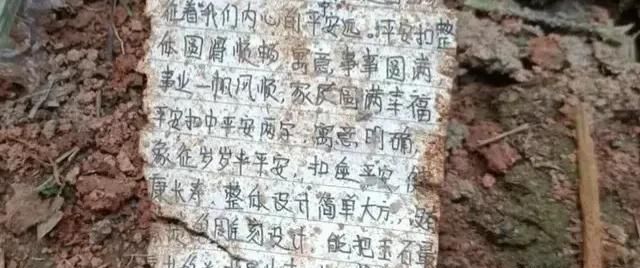 征着我们内心的平安远。平安扣整
体圆滑顺畅 寓意事事圆满
事业一帆风顺，家庭圆满幸福
平安扣中平安两字，寓意明确，
象征岁岁平平安，扣住平安，健
康长寿，整体设计简单大方，
雕刻设计，能把玉石最